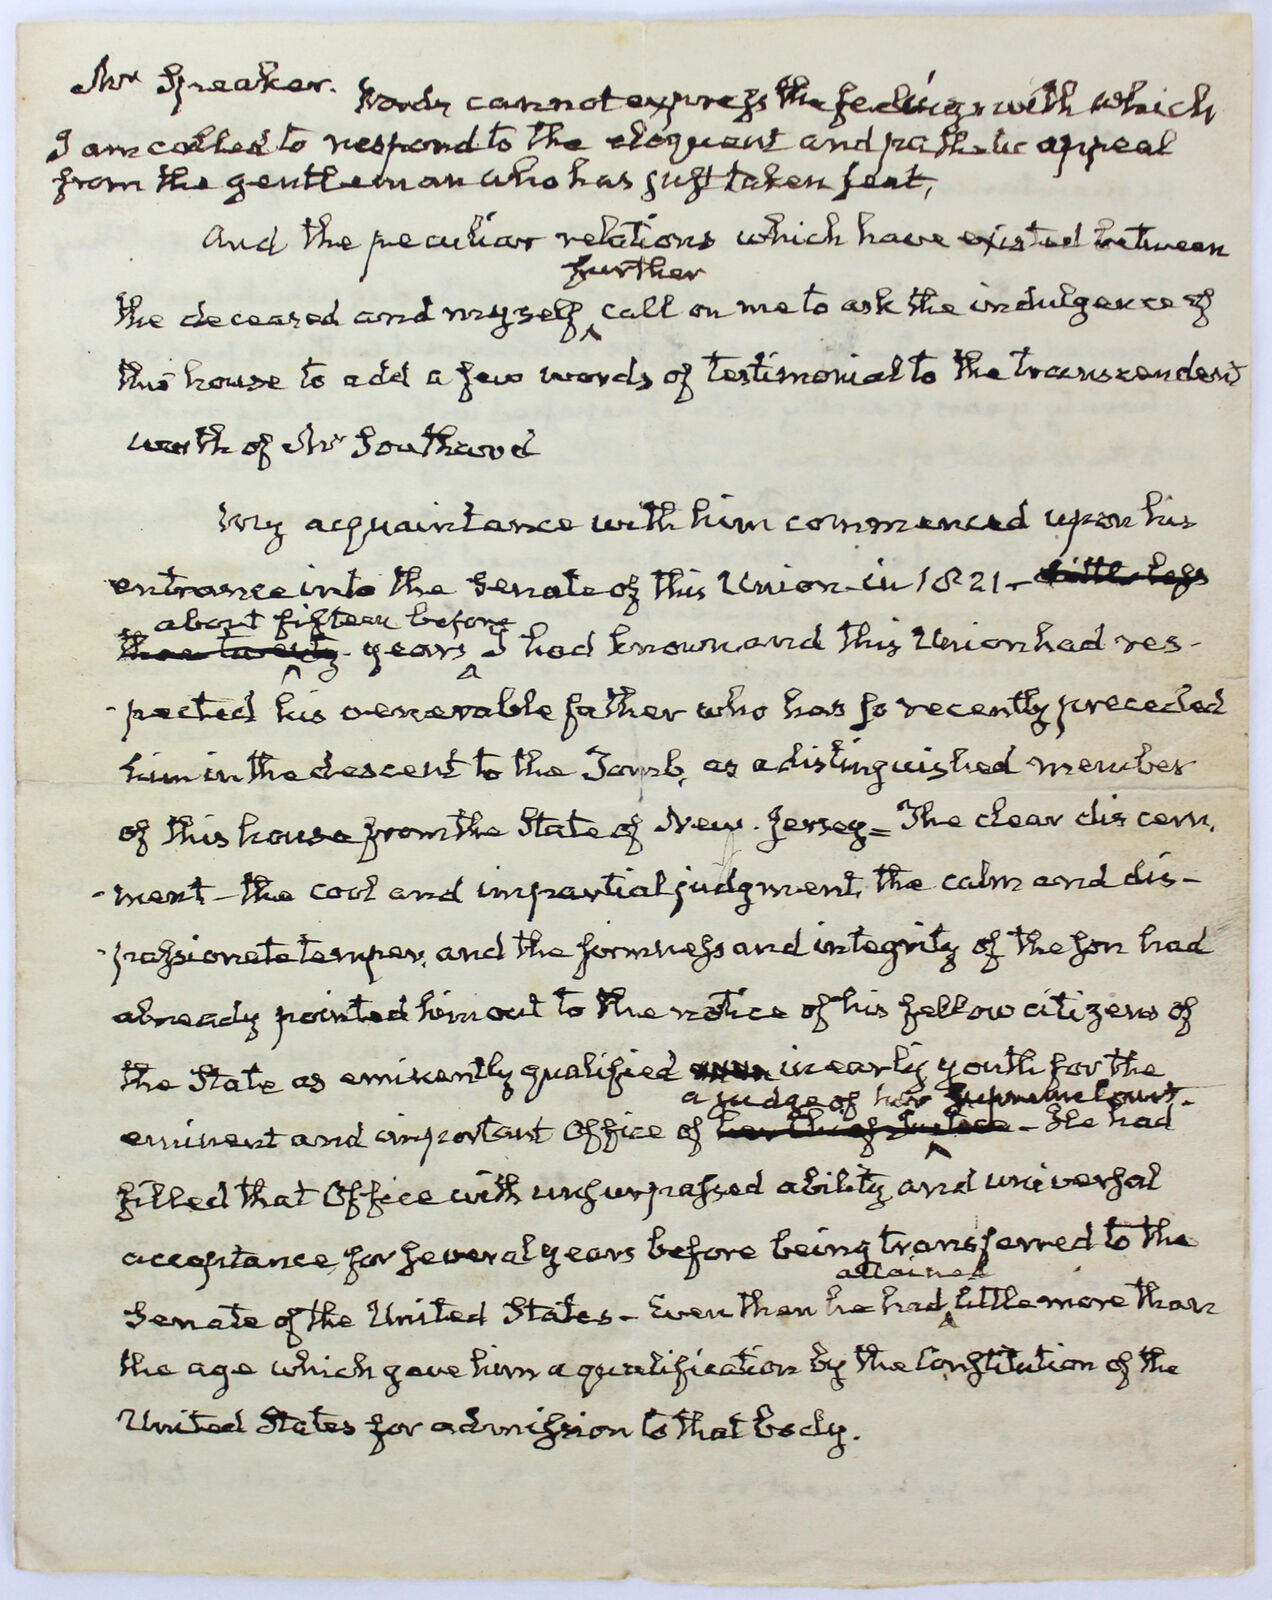 Mr Speaker. Words cannot express the feelings with which
I am called to respond to the eloquent and pathetic appeal
from the gentleman who has just taken seat,
And the peculiar relations which have existed between
further
the deceased and myself ‸ call on me to ask the indulgence of
this house to add a few words of testimonial to the transcendent
worth of Mr Southard
My acquaintance with him commenced upon his
entrance into the Senate of this Union in 1821 - little less
about fifteen before
than twenty years ‸ I had known and this Union had res-
-pected his venerable father who has so recently preceded
him in the descent to the Tomb, as a distinguished member
of this house from the State of New-Jersey = The clear discern,
-ment - the cool and impartial judgment, the calm and dis-
-passionate temper, and the firmness and integrity of the son had
already pointed him out to the notice of his fellow citizens of
the State as eminently qualified even in early youth for the
a judge of her Supreme Court -
eminent and important Office of her Chief Justice ‸ - He had
filled that Office with unsurpassed ability and universal
acceptance for several years before being transferred to the
attained
Senate of the United States - Even then he had ‸ little more than
the age which gave him a qualification by the Constitution of the
United States for admission to that body.